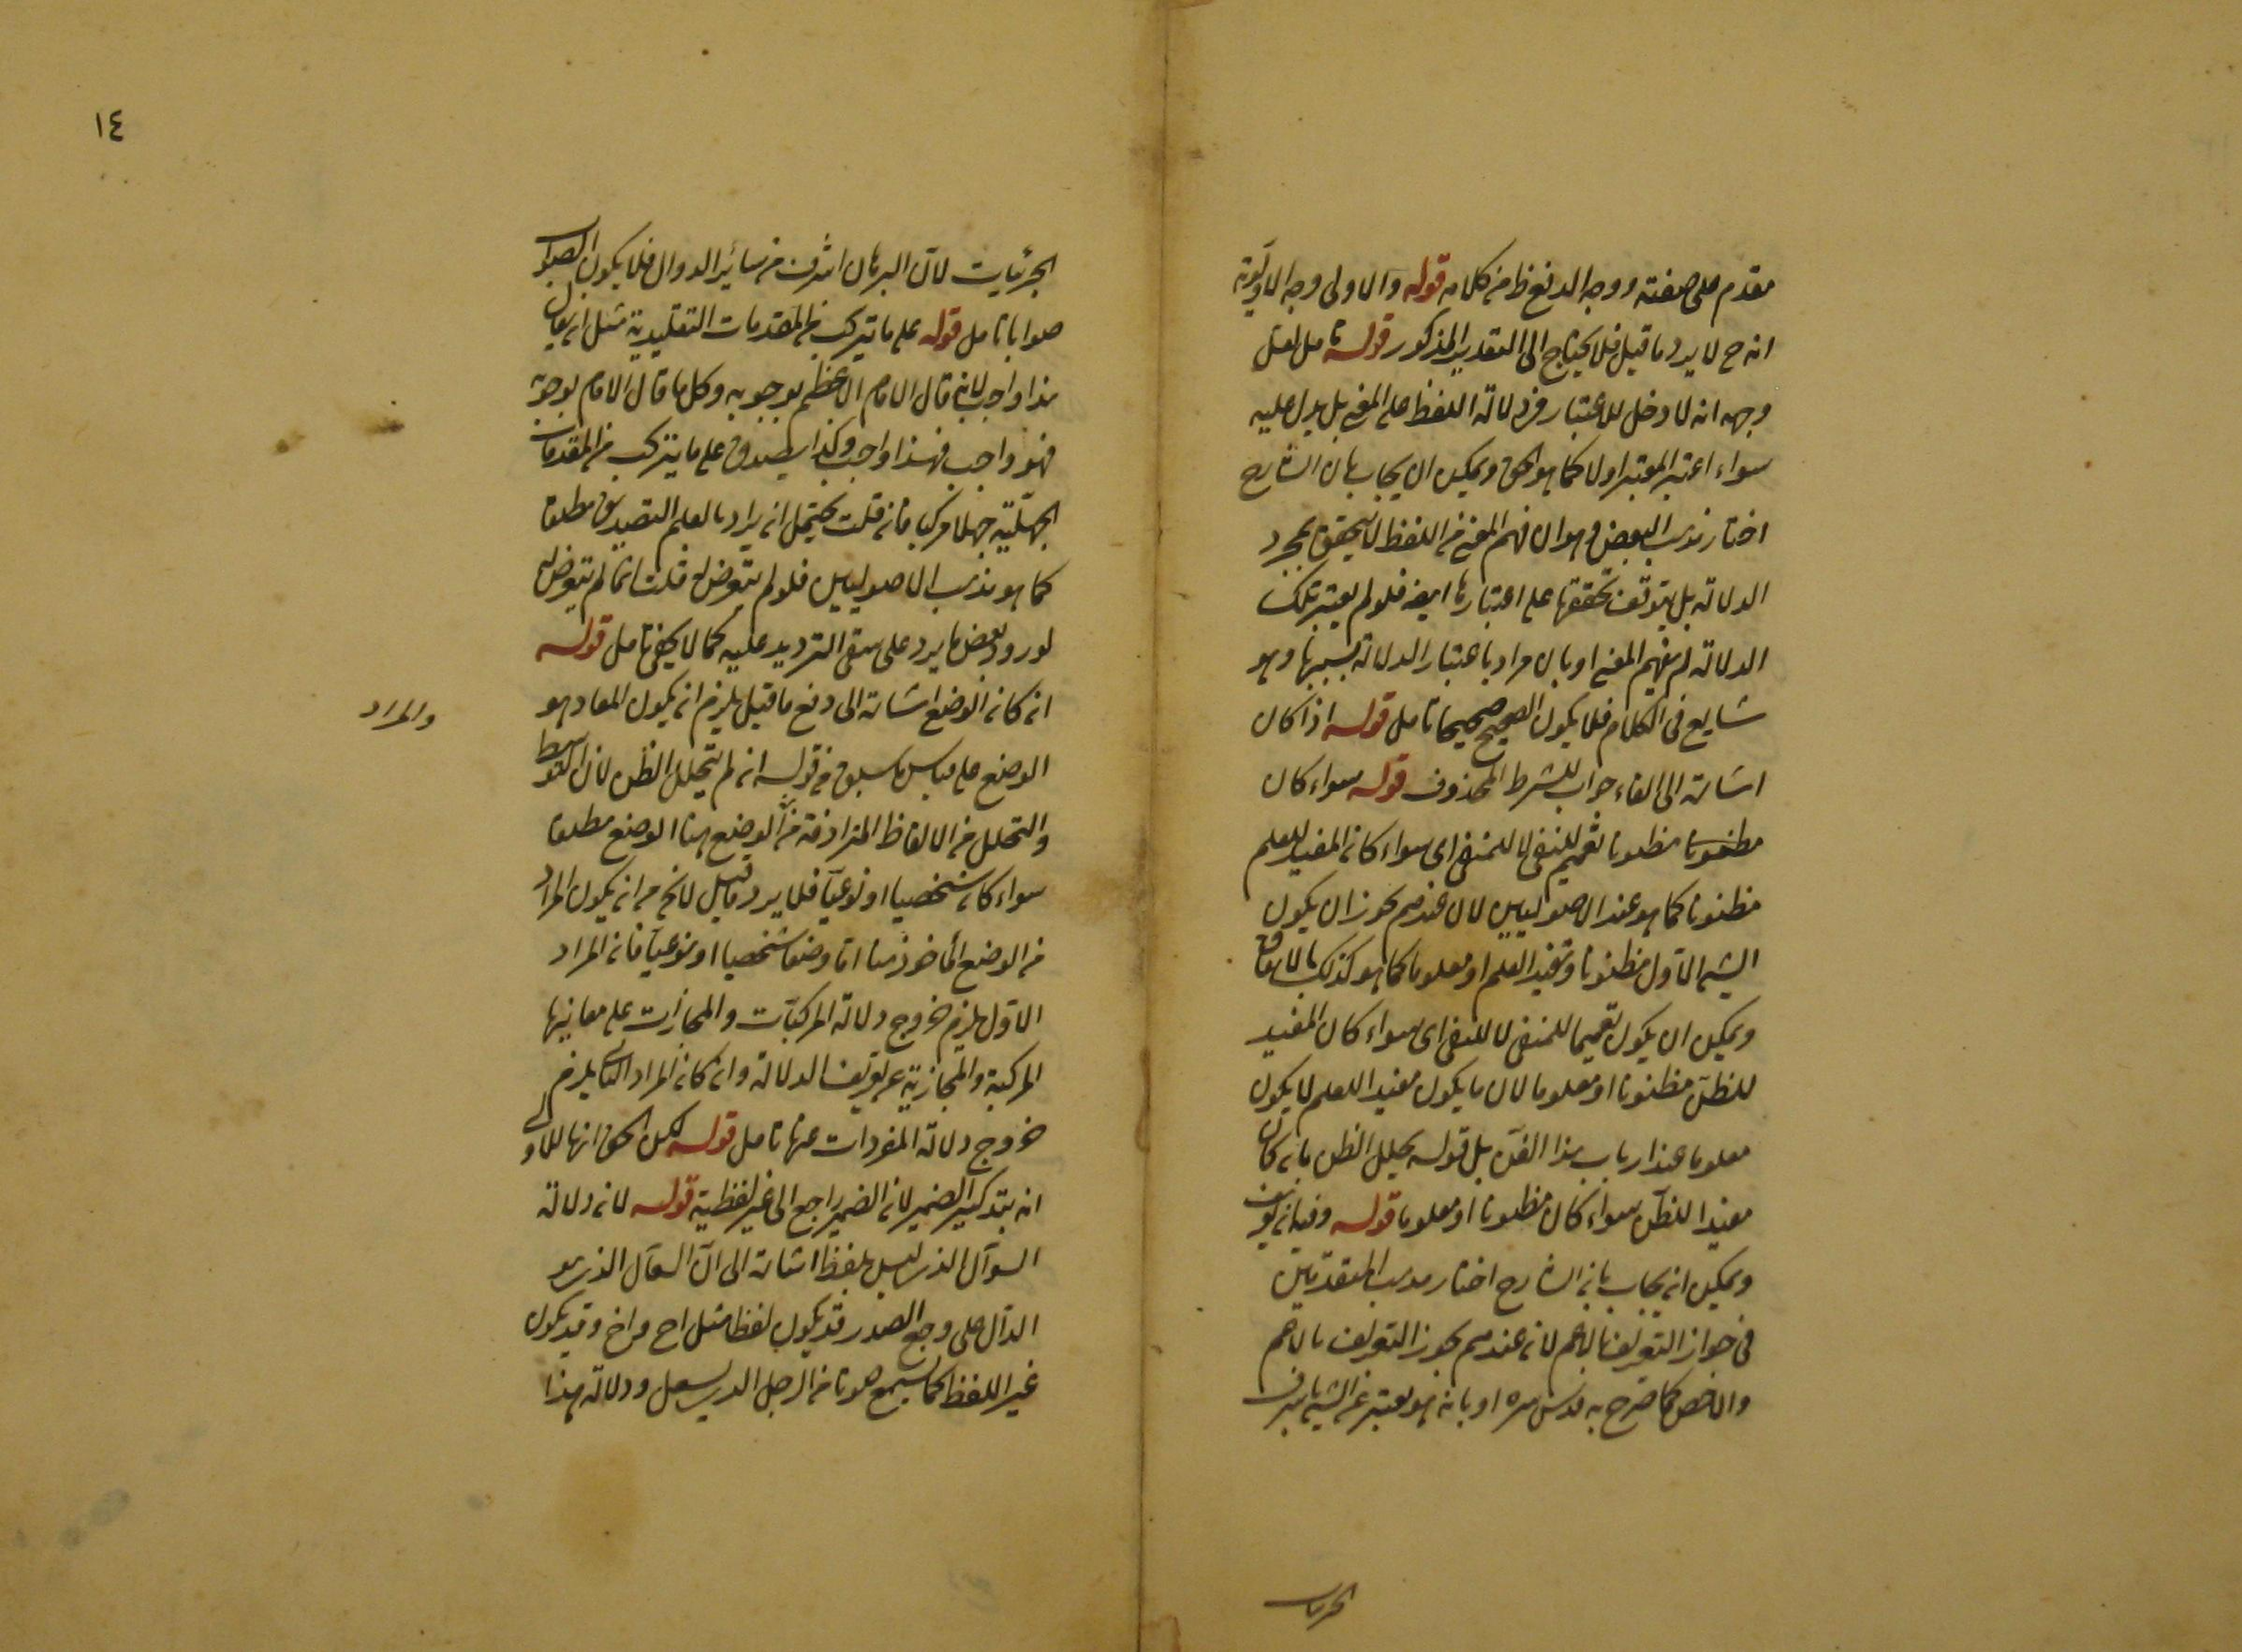 مقدم على صفته ووجه الدفع ظ من كلامه قوله والاولى وجه الاولوية
انه ح لا يرد ما قيل فلا يحتاج الى التقدير المذكور قوله تامل لعل
وجهه انه لا دخل للاعتبار فى دلالة اللفظ على المعنى بل يدل عليه
سواء اعتبر المعتبر اولا كما هو الحق ويمكن ان يجاب بان الشارح
اختار مذهب البعض وهو ان فهم المعنى من اللفظ لا يتحقق بمجرد
الدلالة بل يتوقف تحققها على اعتبارها ايضا فلو لم يعتبر تلك
الدلالة لم يفهم المعنى او بان مراد باعتبار الدلالة بسببها وهو
شايع فى الكلام فلا يكون الصحيح صحيحا تامل قوله اذا كان
اشارة الى الفاء جواب للشرط المحذوف قوله سواء كان
مظنونا تعميم للنفى لا للمنفى اى سواء كان المفيد للعلم
مظنونا كما هو عند الاصوليين لان عندهم يجوز ان يكون
الشئ الاول مظنونا ويفيد العلم او معلوما كما هو كذلك بالاتفاق
ويمكن ان يكون تعميما للمنفى لا للنفى اى سواء كان المفيد
للظن مظنونا او معلوما لان ما يكون مفيدا للعلم لا يكون
معلوما عند ارباب هذا الفن بل قوله يحلل الظن بانه كان
مفيدا للظن سواء كان مظنونا او معلوما قوله وفيه انه
ويمكن انه يجاب بانه الشارح اختار مذهب المتقدمين
فى جواز التعريف بالاعم لانه عندهم يجوز التعريف بالاعم
والاخص كما صرح به قدس سره او بانه هو يعتبر عن الشئ باشرف
الجزئيات
١٤
الجزئيات لان البرهان اشرف من سائر الدوال فلا يكون الصواب
صوابا تامل قوله على ما تيركب من المقدمات التقليدية مثل ان يقال
هذا واجب لانه قال الامام الاعظم بوجوبه وكل ما قال الامام بوجوبه
فهو واجب فهذا واجب وكذا يصدق على ما يتركب من المقدمات
الجهلية جهلا مركبا فانه قلت يحتمل انه يراد بالعلم التصديق مطلقا
كما هو مذهب الاصوليين فلو لم يتعرض له قلت انما لم يتعرض له
لورود بعض ما يرد على شقى الترديد عليه كما لا يخفى تامل قوله
انه كانه الوضع اشارة الى دفع ما قيل يلزم انه يكون المعاد هو
والمراد
الوضع على قياس ما سبق من قوله انه لم يتحلل الظن لان التوسط
والتحلل من الالفاظ المترادفة من الوضع هنا الوضع مطلقا
سواء كانه شخصيا او نوعيا فلا يرد ما قيل لا يخ من انه يكون المراد
من الوضع المأخوذ هنا اما وضعا شخصيا او نوعيا فانه المراد
الاول يلزم خروج دلالة المركبات والمجازات على معانيها
المركبة والمجازية عن تعريف الدلالة وانه كانه المراد الثانى يلزم
خروج دلالة المفردات عنها تامل قوله لكن الحق انها للاول
انه بتذكير الضمير لانه الضمير راجع الى غير لفظية قوله لانه دلالة
السعال الذى ليس بلفظ اشارة الى ان السعال الذى هو
الدال على وجع الصدر قد يكون لفظا مثل اح واخ وقد يكون
غير اللفظ كما يسمع صوتا من الرجل الذى يسعل ودلالة هذا